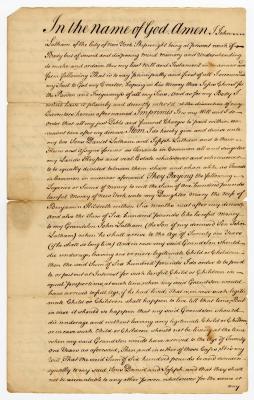 In the name of God Amen, I John
Latham of the City of New York Shipwright being at present weak of
Body but of sound and disposing mind Memory and Understanding
do make and ordain this my last Will and Testament in manner and
form following That is to say principally and first of all I recommend
my Soul to God my Creator, hoping in his Mercy thro' Jesus Christ for
the Pardon and Forgiveness of all my Sins, And as for my Body I
Executors herein after named Imprimis It is my Will and I do
order that all my just Debts and funeral Charges be paid within
convenient time after my decease Item I do hereby give and devise unto
my two Sons Daniel Latham and Joseph Latham and to their
Heirs and Assigns forever as Tenants in Common all and singular
my Lands Houses and real Estate whatsoever and wheresoever
to be equally divided between them share and share alike as Tenants
in Common in manner aforesaid They Paying the following
Legacies or Sums of money to wit the Sum of Six Hundred pounds
lawful Money of New York unto my Daughter Mary the Wife of
Benjamin Hildreth within Six Months next after my decease
And also the Sum of Six hundred pounds like lawful Money
to my Grandson John Latham (the Son of my deceased Son John
Latham) when he shall arrive to the Age of Twenty one Years
(if he shall so long live) And in case my said Grandson should
die underage leaving one or more legitimate Child or Children
then the said Sum of Six hundred pounds I do order to be paid
to or put out at Interest for such lawful Child or Children in
equal Proportions at such time when my said Grandson would
have arrived to full age if he had lived That is in case such legiti
mate Child or Children shall happen to live till that time But
in case it should so happen that my said Grandson should
die underage and without leaving any legitimate Child or Children
or in case such Child or Children should not be living at the time
when my said Grandson would have arrived to the Age of Twenty
one Years as aforesaid, Then and in either of those Cases it is my
Will That the said Sum of Six hundred pounds be and remain
equally to my said Sons Daniel and Joseph and that they shall
not be accountable to any other person whatsoever for the same or
any